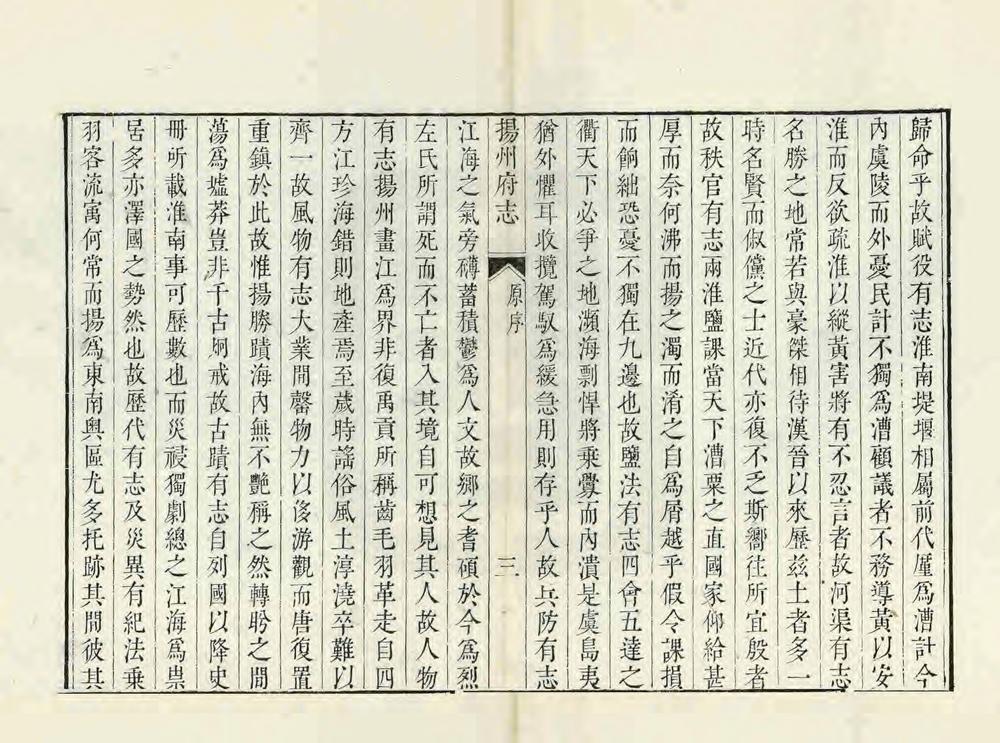 歸命乎故賦役有志淮南堤堰相屬前代厪爲漕計今
內虞陵而外憂民計不獨爲漕顧議者不務導黃以安
淮而反欲疏淮以縱黃害將有不忍言者故河渠有志
名勝之地常若與豪傑相待漢晉以來歷茲土者多一
時名賢而俶儻之士近代亦復不乏斯嚮往所宜殷者
故秩官有志兩淮鹽課當天下漕粟之直國家仰給甚
厚而奈何沸而揚之濁而淆之自爲屑越乎假令課損
而餉絀恐憂不獨在九邊也故鹽法有志四會五達之
衢天下必爭之地瀕海剽悍將乘釁而內潰是虞島夷
猶外懼耳收攬駕馭爲緩急用則存乎人故兵防有志
揚州府志
原序
三
江海之氣旁礴蓄積鬱爲人文故鄉之耆碩於今爲烈
左氏所謂死而不亡者入其境自可想見其人故人物
有志揚州畫江爲界非復禹貢所稱齒毛羽革走自四
方江珍海錯則地產焉至歲時謠俗風土淳澆卒難以
齊一故風物有志大業間罄物力以侈游觀而唐復置
重鎮於此故惟揚勝蹟海內無不豔稱之然轉盻之間
蕩爲墟莽豈非千古炯戒故古蹟有志自列國以降史
冊所載淮南事可歷數也而災祲獨劇總之江海爲祟
居多亦澤國之勢然也故歷代有志及災異有紀法乘
羽客流寓何常而揚爲東南輿區尤多托跡其間彼其